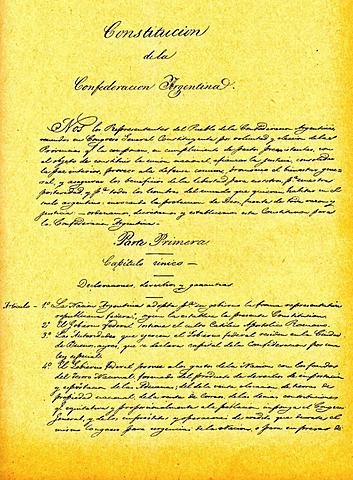 Constitucion
de la
Confederacion Argentina.
Nos los Representantes del Pueblo de la Confederacion Argentina,
reunidos en Congreso General Constituyente por voluntad y eleccion de las
Provincias que la componen, en cumplimiento de pactos preexistentes, con
el objeto de constituir la union nacional, afianzar la justicia, consolidar
la paz interior, proveer a la defensa comun, promover el bienestar gene-
ral, y asegurar los beneficios de la libertad para nosotros, para nuestra
posteridad y para todos los hombres del mundo que quieran habitar en el
suelo argentino: invocando la proteccion de Dios, fuente de toda razon y
justicia: ordenamos, decretamos y establecemos esta Constitucion para
la Confederacion Argentina.
Parte Primera
Capitulo único
Declaraciones, derechos y garantias
Articulo 1º La Nacion Argentina adopta para su gobierno la forma representativa
republicana federal, segun la establece la presente Constitucion.
2º El Gobierno Federal sostiene el culto Católico Apostolico Romano.
3º Las Autoridades que ejercen el Gobierno federal residen en la Ciudad
de Buenos Ayres, que se declara capital de la Confederacion por una
ley especial.
4º El Gobierno Federal provee a los gastos de la Nacion con los fondos
del Tesoro Nacional, formado del producto de derechos de importacion
y esportacion de las Aduanas; del de la venta o locacion de tierras de
propiedad nacional, de la renta de Correos, de las demas contribuciones
que equitativa y proporcionalmente a la poblacion imponga el Congreso
General, y de los empréstitos y operaciones de crédito que decrete el
mismo Congreso para urgencias de la Nacion o para empresas de